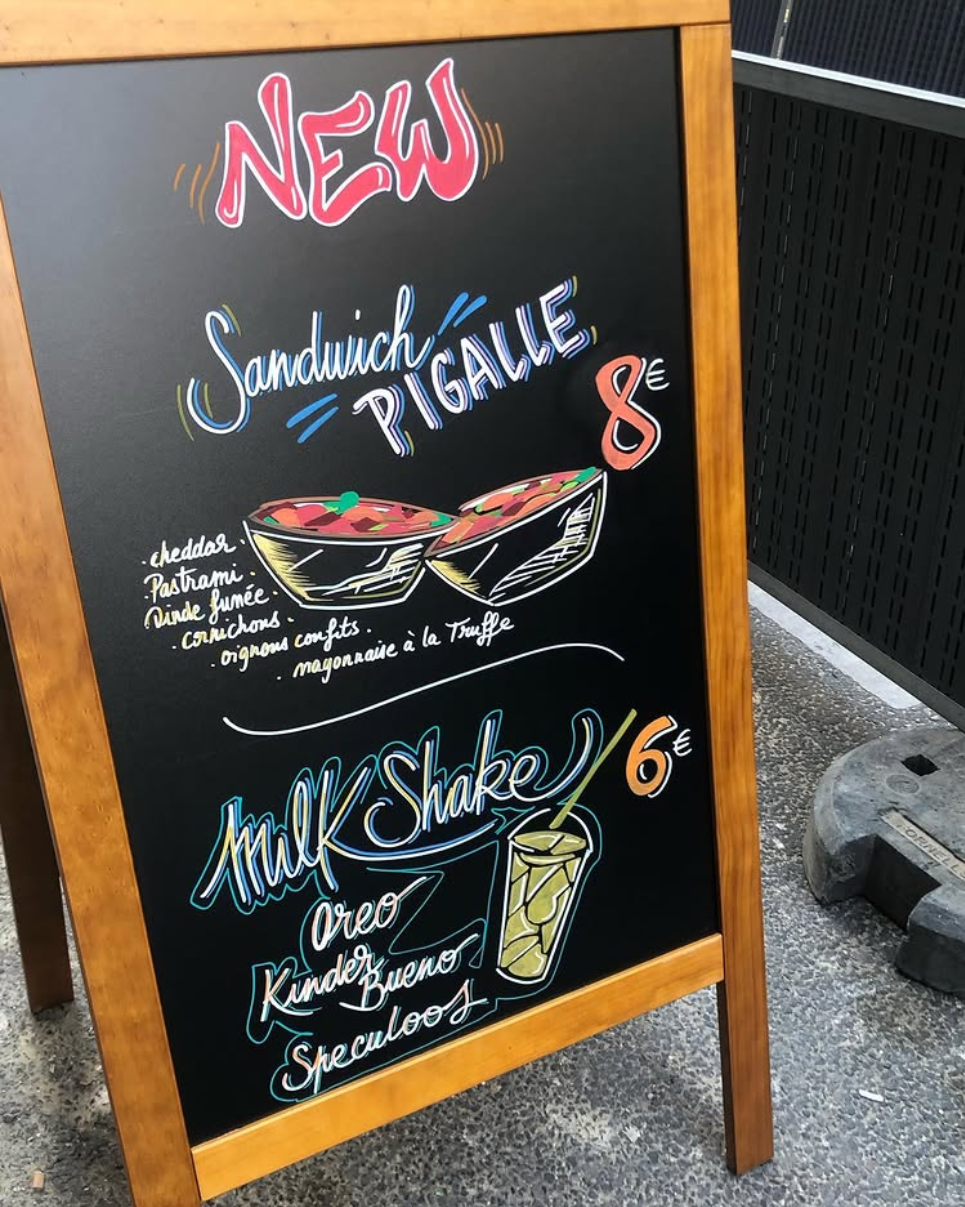 NEW
Sandwich
PIGALLE
8€
. cheddar .
. Pastrami .
. Dinde fumée .
. cornichons .
. oignons confits .
. mayonnaise à la Truffe
Milk Shake
6€
Oreo
Kinder
Bueno
Speculoos